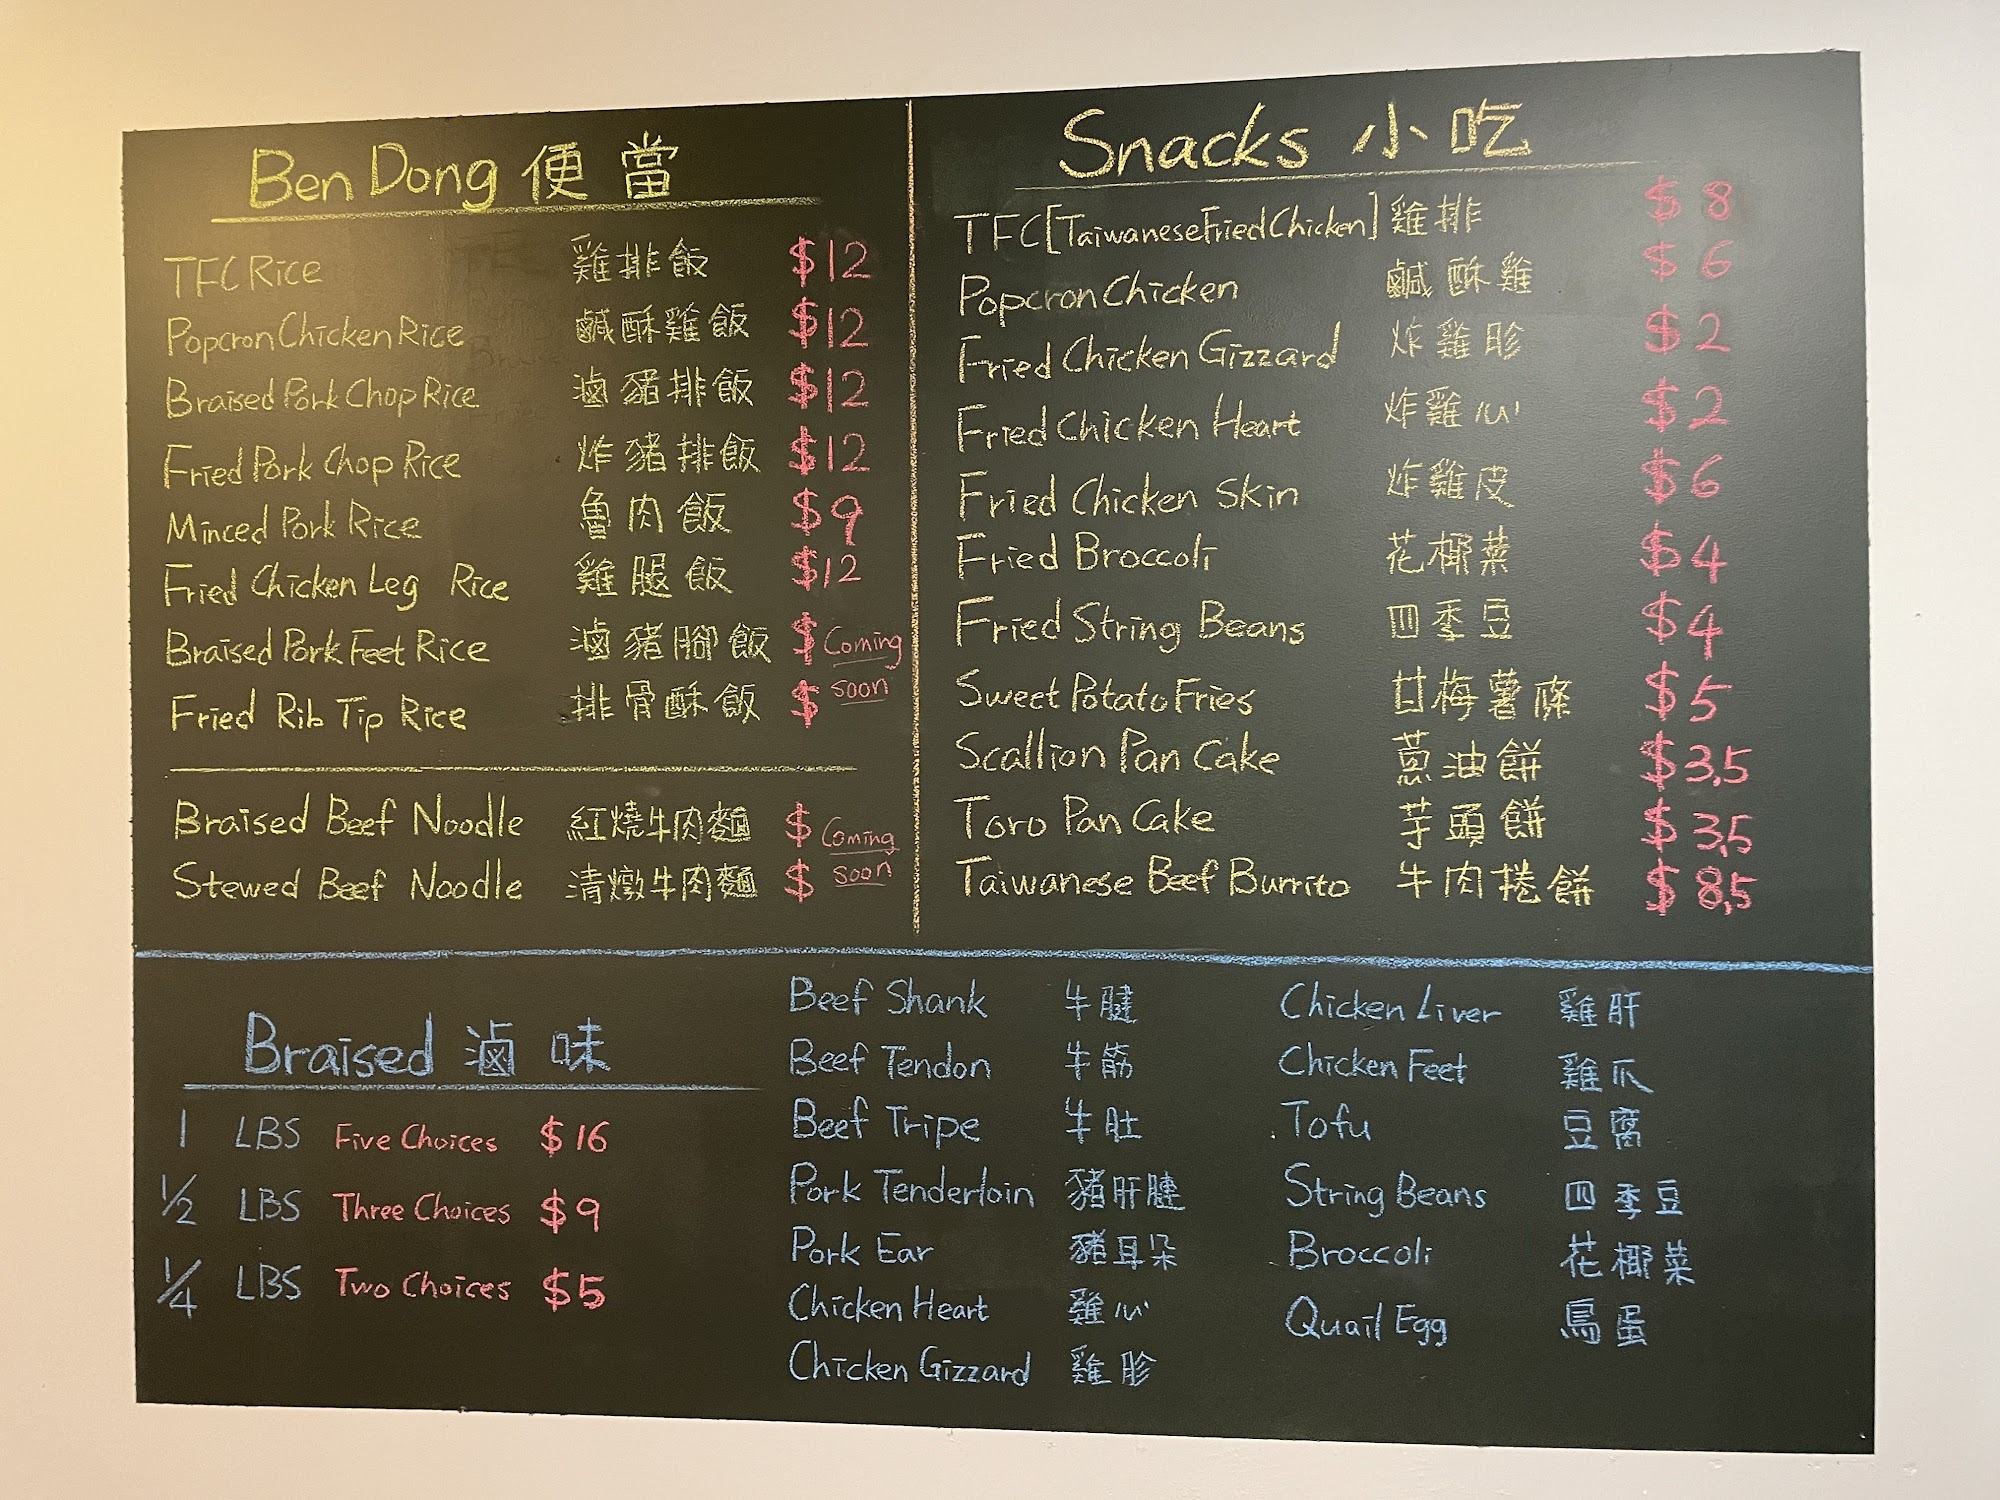 Ben Dong 便當
TFC Rice 雞排飯 $12
Popcron Chicken Rice 鹹酥雞飯 $12
Braised Pork Chop Rice 滷豬排飯 $12
Fried Pork Chop Rice 炸豬排飯 $12
Minced Pork Rice 魯肉飯 $9
Fried Chicken Leg Rice 雞腿飯 $12
Braised Pork Feet Rice 滷豬腳飯 $ Coming
Fried Rib Tip Rice 排骨酥飯 $ soon
Braised Beef Noodle 紅燒牛肉麵 $ Coming
Stewed Beef Noodle 清燉牛肉麵 $ soon
Snacks 小吃
TFC [Taiwanese Fried Chicken] 雞排 $8
Popcron Chicken 鹹酥雞 $6
Fried Chicken Gizzard 炸雞胗 $2
Fried Chicken Heart 炸雞心 $2
Fried Chicken Skin 炸雞皮 $6
Fried Broccoli 花椰菜 $4
Fried String Beans 四季豆 $4
Sweet Potato Fries 甘梅薯條 $5
Scallion Pan Cake 蔥油餅 $3,5
Toro Pan Cake 芋頭餅 $3,5
Taiwanese Beef Burrito 牛肉捲餅 $8,5
Braised 滷味
1 LBS Five Choices $16
1/2 LBS Three Choices $9
1/4 LBS Two Choices $5
Beef Shank 牛腱
Beef Tendon 牛筋
Beef Tripe 牛肚
Pork Tenderloin 豬肝腱
Pork Ear 豬耳朵
Chicken Heart 雞心
Chicken Gizzard 雞胗
Chicken Liver 雞肝
Chicken Feet 雞爪
Tofu 豆腐
String Beans 四季豆
Broccoli 花椰菜
Quail Egg 鳥蛋